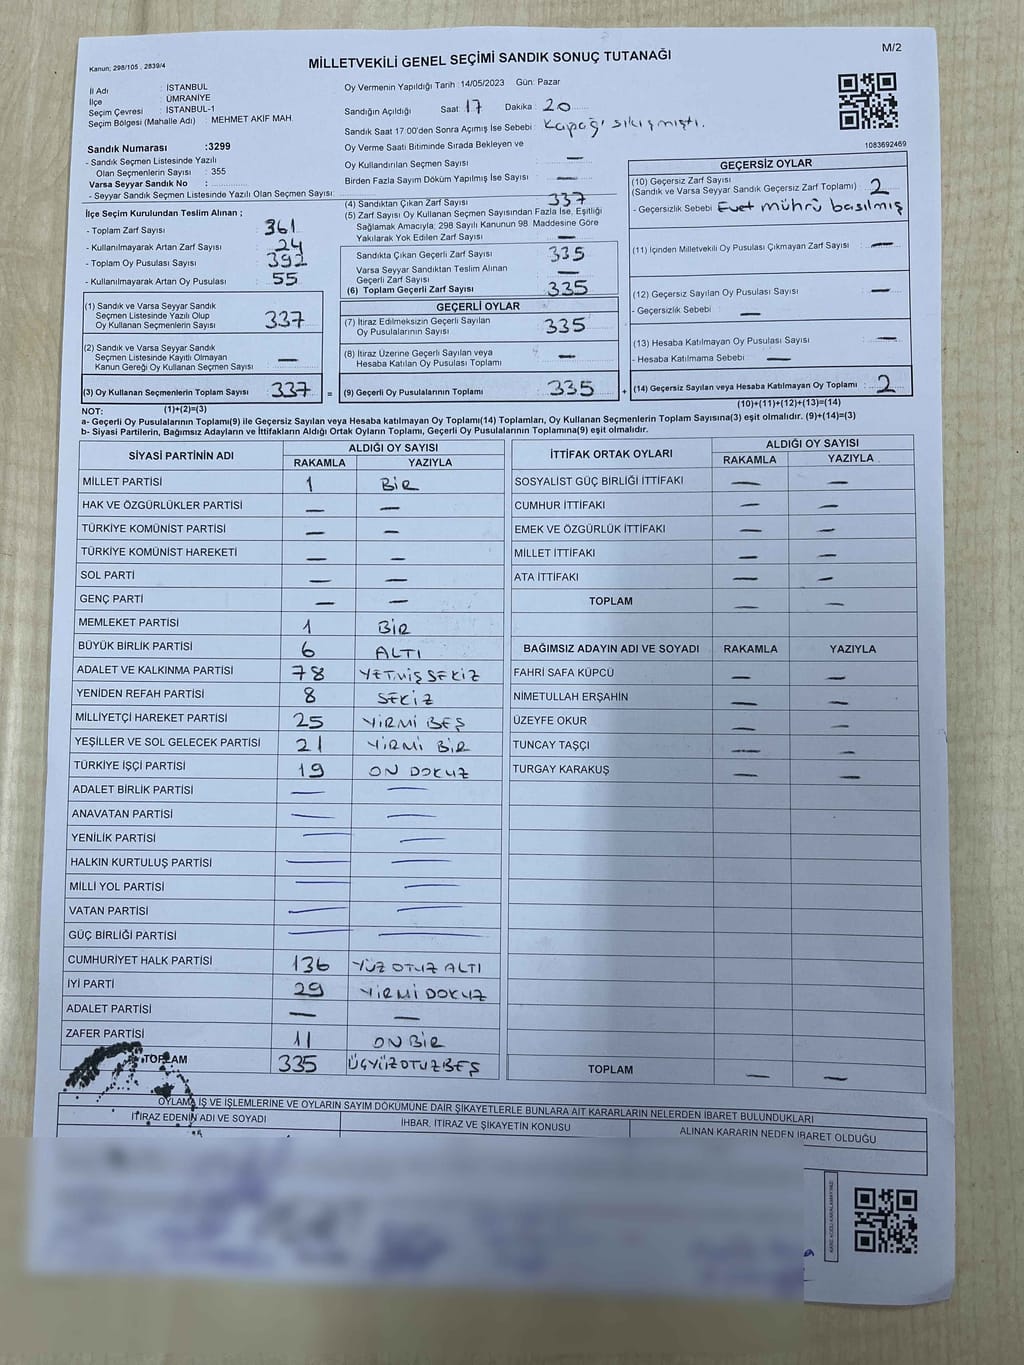 M/2
Kanun; 298/105 , 2839/4
MİLLETVEKİLİ GENEL SEÇİMİ SANDIK SONUÇ TUTANAĞI
İl Adı : İSTANBUL
İlçe : ÜMRANİYE
Seçim Çevresi : İSTANBUL-1
Seçim Bölgesi (Mahalle Adı) : MEHMET AKİF MAH.
Sandık Numarası :3299
- Sandık Seçmen Listesinde Yazılı
Olan Seçmenlerin Sayısı : 355
Varsa Seyyar Sandık No :
- Seyyar Sandık Seçmen Listesinde Yazılı Olan Seçmen Sayısı:
İlçe Seçim Kurulundan Teslim Alınan ;
- Toplam Zarf Sayısı : 361
- Kullanılmayarak Artan Zarf Sayısı : 24
- Toplam Oy Pusulası Sayısı : 392
- Kullanılmayarak Artan Oy Pusulası : 55
(1) Sandık ve Varsa Seyyar Sandık
Seçmen Listesinde Yazılı Olup
Oy Kullanan Seçmenlerin Sayısı 337
(2) Sandık ve Varsa Seyyar Sandık
Seçmen Listesinde Kayıtlı Olmayan
Kanun Gereği Oy Kullanan Seçmen Sayısı —
(3) Oy Kullanan Seçmenlerin Toplam Sayısı 337 =
(1)+(2)=(3)
Oy Vermenin Yapıldığı Tarih : 14/05/2023 Gün: Pazar
Sandığın Açıldığı Saat: 17 Dakika : 20
Sandık Saat 17:00'den Sonra Açımış İse Sebebi : Kapağı sıkışmıştı.
Oy Verme Saati Bitiminde Sırada Bekleyen ve
Oy Kullandırılan Seçmen Sayısı —
Birden Fazla Sayım Döküm Yapılmış İse Sayısı : —
(4) Sandıktan Çıkan Zarf Sayısı 337
(5) Zarf Sayısı Oy Kullanan Seçmen Sayısından Fazla İse, Eşitliği
Sağlamak Amacıyla; 298 Sayılı Kanunun 98. Maddesine Göre
Yakılarak Yok Edilen Zarf Sayısı —
Sandıkta Çıkan Geçerli Zarf Sayısı 335
Varsa Seyyar Sandıktan Teslim Alınan
Geçerli Zarf Sayısı —
(6) Toplam Geçerli Zarf Sayısı 335
GEÇERLİ OYLAR
(7) İtiraz Edilmeksizin Geçerli Sayılan
Oy Pusulalarının Sayısı 335
(8) İtiraz Üzerine Geçerli Sayılan veya
Hesaba Katılan Oy Pusulası Toplamı —
(9) Geçerli Oy Pusulalarının Toplamı 335 +
1083692469
GEÇERSİZ OYLAR
(10) Geçersiz Zarf Sayısı
(Sandık ve Varsa Seyyar Sandık Geçersiz Zarf Toplamı) 2
- Geçersizlik Sebebi Evet mührü basılmış
(11) İçinden Milletvekili Oy Pusulası Çıkmayan Zarf Sayısı —
(12) Geçersiz Sayılan Oy Pusulası Sayısı —
- Geçersizlik Sebebi —
(13) Hesaba Katılmayan Oy Pusulası Sayısı —
- Hesaba Katılmama Sebebi —
(14) Geçersiz Sayılan veya Hesaba Katılmayan Oy Toplamı 2
(10)+(11)+(12)+(13)=(14)
NOT:
a- Geçerli Oy Pusulalarının Toplamı(9) ile Geçersiz Sayılan veya Hesaba katılmayan Oy Toplamı(14) Toplamları, Oy Kullanan Seçmenlerin Toplam Sayısına(3) eşit olmalıdır. (9)+(14)=(3)
b- Siyasi Partilerin, Bağımsız Adayların ve İttifakların Aldığı Ortak Oyların Toplamı, Geçerli Oy Pusulalarının Toplamına(9) eşit olmalıdır.
SİYASİ PARTİNİN ADI ALDIĞI OY SAYISI
RAKAMLA YAZIYLA
MİLLET PARTİSİ 1 BİR
HAK VE ÖZGÜRLÜKLER PARTİSİ — —
TÜRKİYE KOMÜNİST PARTİSİ — —
TÜRKİYE KOMÜNİST HAREKETİ — —
SOL PARTİ — —
GENÇ PARTİ — —
MEMLEKET PARTİSİ 1 BİR
BÜYÜK BİRLİK PARTİSİ 6 ALTI
ADALET VE KALKINMA PARTİSİ 78 YETMİŞ SEKİZ
YENİDEN REFAH PARTİSİ 8 SEKİZ
MİLLİYETÇİ HAREKET PARTİSİ 25 YİRMİ BEŞ
YEŞİLLER VE SOL GELECEK PARTİSİ 21 YİRMİ BİR
TÜRKİYE İŞÇİ PARTİSİ 19 ON DOKUZ
ADALET BİRLİK PARTİSİ — —
ANAVATAN PARTİSİ — —
YENİLİK PARTİSİ — —
HALKIN KURTULUŞ PARTİSİ — —
MİLLİ YOL PARTİSİ — —
VATAN PARTİSİ — —
GÜÇ BİRLİĞİ PARTİSİ — —
CUMHURİYET HALK PARTİSİ 136 YÜZ OTUZ ALTI
İYİ PARTİ 29 YİRMİ DOKUZ
ADALET PARTİSİ — —
ZAFER PARTİSİ 11 ON BİR
TOPLAM 335 ÜÇYÜZOTUZBEŞ
İTTİFAK ORTAK OYLARI ALDIĞI OY SAYISI
RAKAMLA YAZIYLA
SOSYALİST GÜÇ BİRLİĞİ İTTİFAKI — —
CUMHUR İTTİFAKI — —
EMEK VE ÖZGÜRLÜK İTTİFAKI — —
MİLLET İTTİFAKI — —
ATA İTTİFAKI — —
TOPLAM — —
BAĞIMSIZ ADAYIN ADI VE SOYADI RAKAMLA YAZIYLA
FAHRİ SAFA KÜPCÜ — —
NİMETULLAH ERŞAHİN — —
ÜZEYFE OKUR — —
TUNCAY TAŞÇI — —
TURGAY KARAKUŞ — —
TOPLAM — —
OYLAMA İŞ VE İŞLEMLERİNE VE OYLARIN SAYIM DÖKÜMÜNE DAİR ŞİKAYETLERLE BUNLARA AİT KARARLARIN NELERDEN İBARET BULUNDUKLARI
İTİRAZ EDENİN ADI VE SOYADI İHBAR, İTİRAZ VE ŞİKAYETİN KONUSU ALINAN KARARIN NEDEN İBARET OLDUĞU